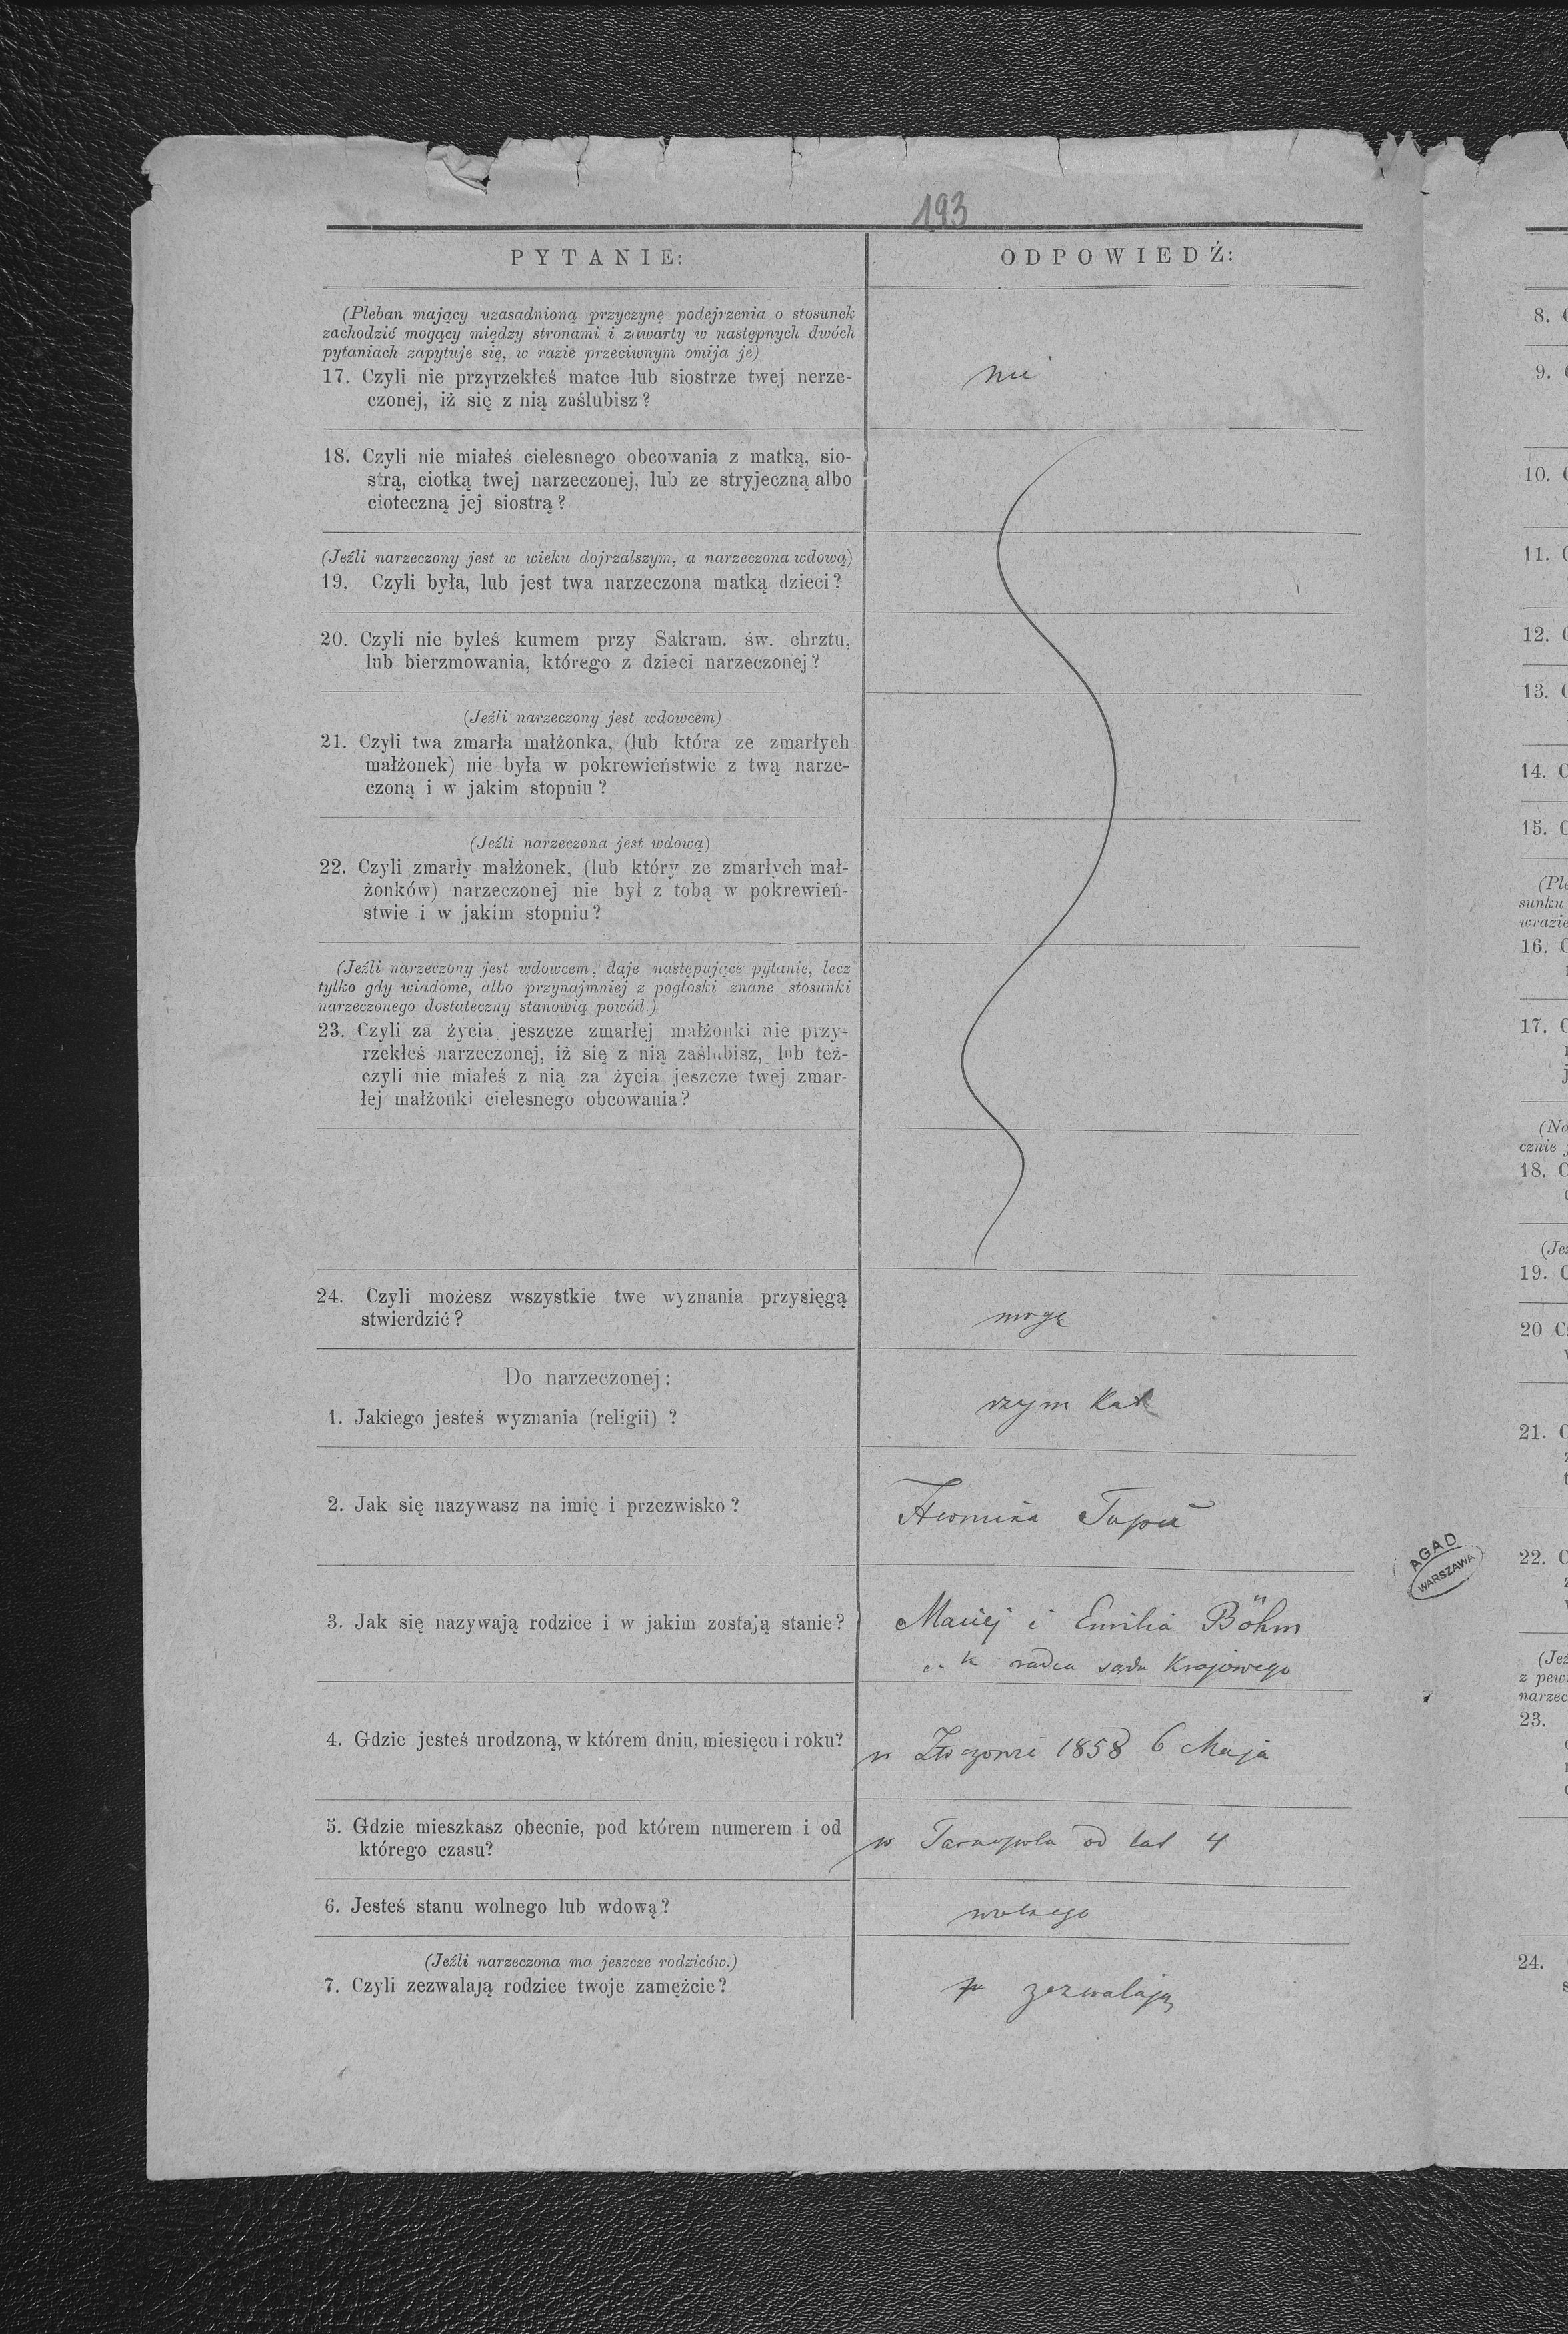 193
PYTANIE:
ODPOWIEDŹ:
(Pleban mający uzasadnioną przyczynę podejrzenia o stosunek
zachodzić mogący między stronami i zawarty w następnych dwóch
pytaniach zapytuje się, w razie przeciwnym omija je)
17. Czyli nie przyrzekłeś matce lub siostrze twej nerze-
czonej, iż się z nią zaślubisz?
nie
18. Czyli nie miałeś cielesnego obcowania z matką, sio-
strą, ciotką twej narzeczonej, lub ze stryjeczną albo
cioteczną jej siostrą?
(Jeźli narzeczony jest w wieku dojrzalszym, a narzeczona wdową)
19. Czyli była, lub jest twa narzeczona matką dzieci?
20. Czyli nie byłeś kumem przy Sakram. św. chrztu,
lub bierzmowania, którego z dzieci narzeczonej?
(Jeźli narzeczony jest wdowcem)
21. Czyli twa zmarła małżonka, (lub która ze zmarłych
małżonek) nie była w pokrewieństwie z twą narze-
czoną i w jakim stopniu?
(Jeźli narzeczona jest wdową)
22. Czyli zmarły małżonek, (lub który ze zmarłych mał-
żonków) narzeczonej nie był z tobą w pokrewień-
stwie i w jakim stopniu?
(Jeźli narzeczony jest wdowcem, daje następujące pytanie, lecz
tylko gdy wiadome, albo przynajmniej z pogłoski znane stosunki
narzeczonego dostateczny stanowią powód.)
23. Czyli za życia jeszcze zmarłej małżonki nie przy-
rzekłeś narzeczonej, iż się z nią zaślubisz, lub też-
czyli nie miałeś z nią za życia jeszcze twej zmar-
łej małżonki cielesnego obcowania?
24. Czyli możesz wszystkie twe wyznania przysięgą
stwierdzić?
mogę
Do narzeczonej:
1. Jakiego jesteś wyznania (religii) ?
rzym kat
2. Jak się nazywasz na imię i przezwisko?
3. Jak się nazywają rodzice i w jakim zostają stanie?
Maciej i Emilia Böhm
c. k radca sądu Krajowego
4. Gdzie jesteś urodzoną, w którem dniu, miesięcu i roku?
w Złoczowie 1858 6 Maja
5. Gdzie mieszkasz obecnie, pod którem numerem i od
którego czasu?
w Tarnopolu od lat 4
6. Jesteś stanu wolnego lub wdową?
wolnego
(Jeźli narzeczona ma jeszcze rodziców.)
7. Czyli zezwalają rodzice twoje zamężcie?
zezwalają
AGAD
WARSZAWA
8.
9.
10.
11.
12.
13.
14.
15.
16.
17.
18.
19.
20
21.
22.
23.
24.